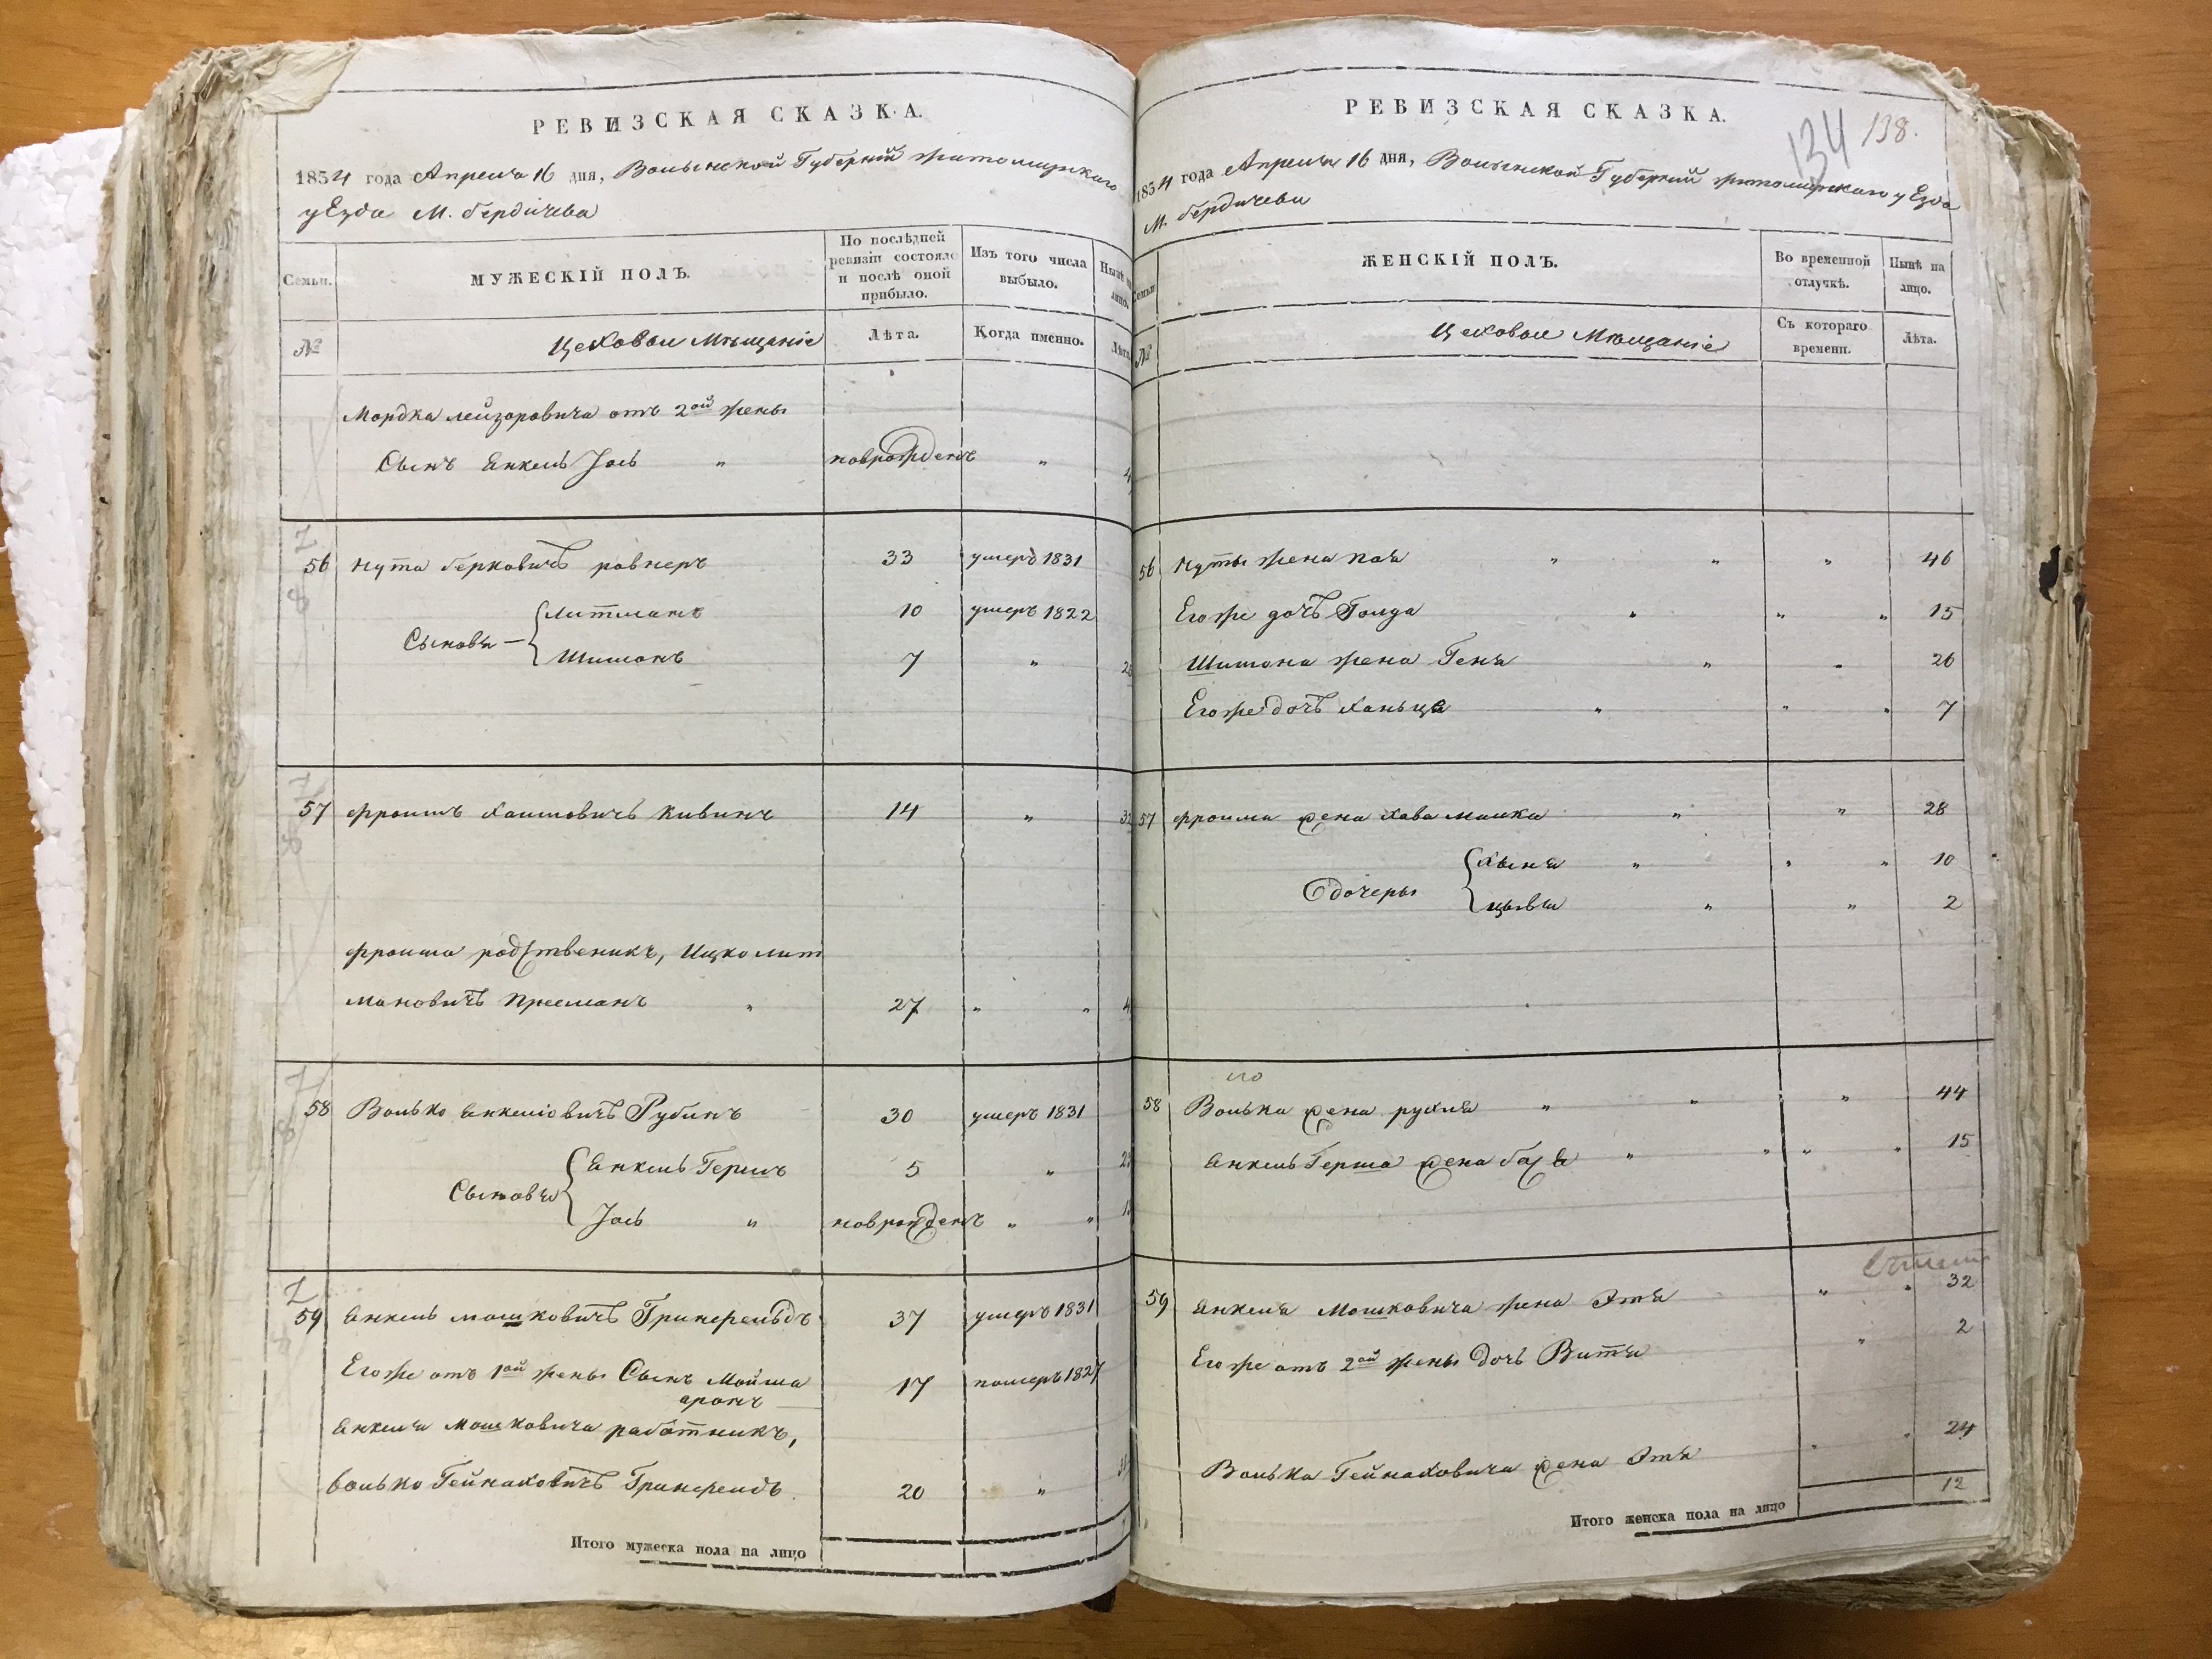 РЕВИЗСКАЯ СКАЗКА.
1834 года Апреля 16 дня, Волынской Губерніи Житомирскаго
уЕзда М. Бердичева
Семьи.
МУЖЕСКІЙ ПОЛЪ.
По послѣдней
ревизіи состояло
и послѣ оной
прибыло.
Изъ того числа
выбыло.
Нынѣ на
лицо.
№
Цеховыи Мѣщаніе
Лѣта.
Когда именно.
Лѣта.
Мордка Лейзоровича отъ 2ой жены
Сынъ Янкель Іось " новрожденъ " 4
56 Нута Берковичъ ровнеръ 33 умеръ 1831
Сыновя — { Литманъ 10 умеръ 1822
Шимонъ 7 "
57 Фроимъ Хаимовичъ Кивинъ 14 " 32
Фроима родственикъ, Ицко Лит
мановичъ 27 " "
58 Волько Янкеліовичъ Рубинъ 30 умеръ 1831
Сыновя { Янкель Гершъ 5 "
Іось " новрожденъ " "
59 Янкель Мошковичъ Гринфельдъ 37 умеръ 1831
Его же отъ 1ой жены Сынъ Мойша 17 померъ 1827
аронъ
Янкеля Мошковича работникъ,
Волько Гейнаховичъ Гринфелдъ 20 "
Итого мужеска пола на лицо
РЕВИЗСКАЯ СКАЗКА.
134 138.
1834 года Апреля 16 дня, Волынской Губерніи Житомирскаго уЕзда
М. Бердичева
Семьи
ЖЕНСКІЙ ПОЛЪ.
Во временной
отлучкѣ.
Нынѣ на
лицо.
№
Цеховыи Мѣщаніе
Съ котораго
времени.
Лѣта.
56 Нуты жена Поя " " " 46
Его же дочъ Голда " " " 15
Шимона жена Геня " " 26
Его же дочъ Ханьця " " " 7
57 Фроима жена Хава Малка " " 28
дочеры { Хыня " " " 10
Цывя " " 2
его
58 Волька жена рухля " " " 44
Янкель Герша жена Бася " " " " 15
59 Янкеля Мошковича жена Этя " " 32
Его же отъ 2ой жены дочъ Витя " 2
Волька Гейнаховича жена Этя " " 24
Итого женска пола на лицо 12